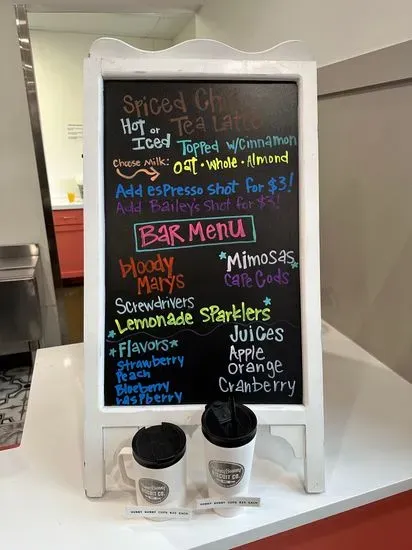 Spiced Chai
Tea Latte
Hot or Iced
Topped w/Cinnamon
Choose Milk:
Oat • Whole • Almond
Add espresso shot for $3!
Add Bailey's Shot for $3!
Bar Menu
bloody Marys
Mimosas
Cape Cods
Screwdrivers
Lemonade Sparklers
Flavors
Strawberry
Peach
Blueberry
raspberry
Juices
Apple
Orange
Cranberry
BISCUIT CO.
BISCUIT CO.